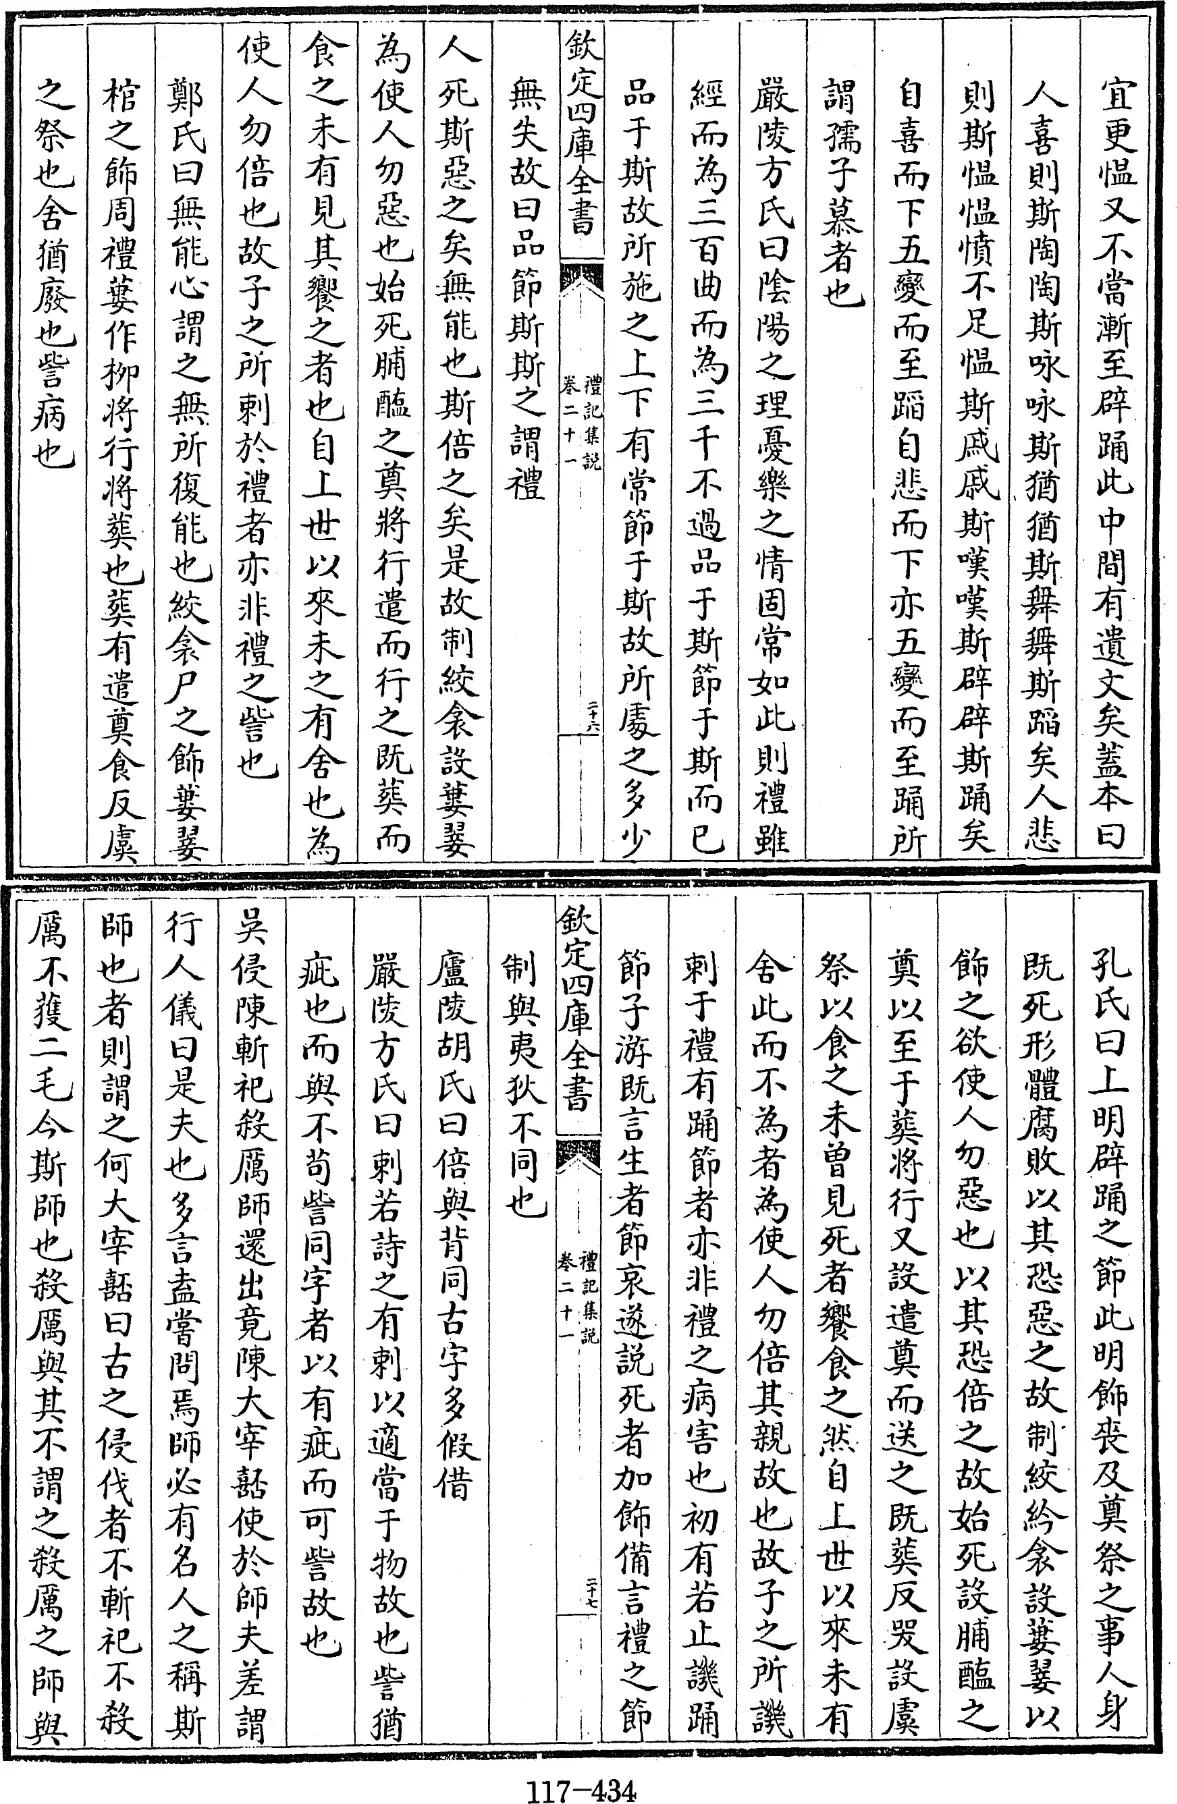 宜更愠又不當漸至辟踊此中間有遺文矣蓋本曰
人喜則斯陶陶斯咏咏斯猶猶斯舞舞斯蹈矣人悲
則斯愠愠憤不足愠斯戚戚斯嘆嘆斯辟辟斯踊矣
自喜而下五變而至蹈自悲而下亦五變而至踊所
謂孺子慕者也
嚴陵方氏曰陰陽之理憂樂之情固常如此則禮雖
經而為三百曲而為三千不過品于斯節于斯而已
品于斯故所施之上下有常節于斯故所處之多少
欽定四庫全書
禮記集說
卷二十一
二十六
無失故曰品節斯斯之謂禮
人死斯惡之矣無能也斯倍之矣是故制絞衾設蔞翣
為使人勿惡也始死脯醢之奠將行遣而行之既葬而
食之未有見其饗之者也自上世以來未之有舍也為
使人勿倍也故子之所刺於禮者亦非禮之訾也
鄭氏曰無能心謂之無所復能也絞衾尸之飾蔞翣
棺之飾周禮蔞作柳將行將葬也葬有遣奠食反虞
之祭也舍猶廢也訾病也
孔氏曰上明辟踊之節此明飾喪及奠祭之事人身
既死形體腐敗以其恐惡之故制絞紟衾設蔞翣以
飾之欲使人勿惡也以其恐倍之故始死設脯醢之
奠以至于葬將行又設遣奠而送之既葬反哭設虞
祭以食之未曾見死者饗食之然自上世以來未有
舍此而不為者為使人勿倍其親故也故子之所譏
刺于禮有踊節者亦非禮之病害也初有若止譏踊
節子游既言生者節哀遂説死者加飾備言禮之節
欽定四庫全書
禮記集說
卷二十一
二十七
制與夷狄不同也
廬陵胡氏曰倍與背同古字多假借
嚴陵方氏曰刺若詩之有刺以適當于物故也訾猶
疵也而與不苟訾同字者以有疵而可訾故也
吳侵陳斬祀殺厲師還出竟陳大宰嚭使於師夫差謂
行人儀曰是夫也多言盍嘗問焉師必有名人之稱斯
師也者則謂之何大宰嚭曰古之侵伐者不斬祀不殺
厲不獲二毛今斯師也殺厲與其不謂之殺厲之師與
117-434